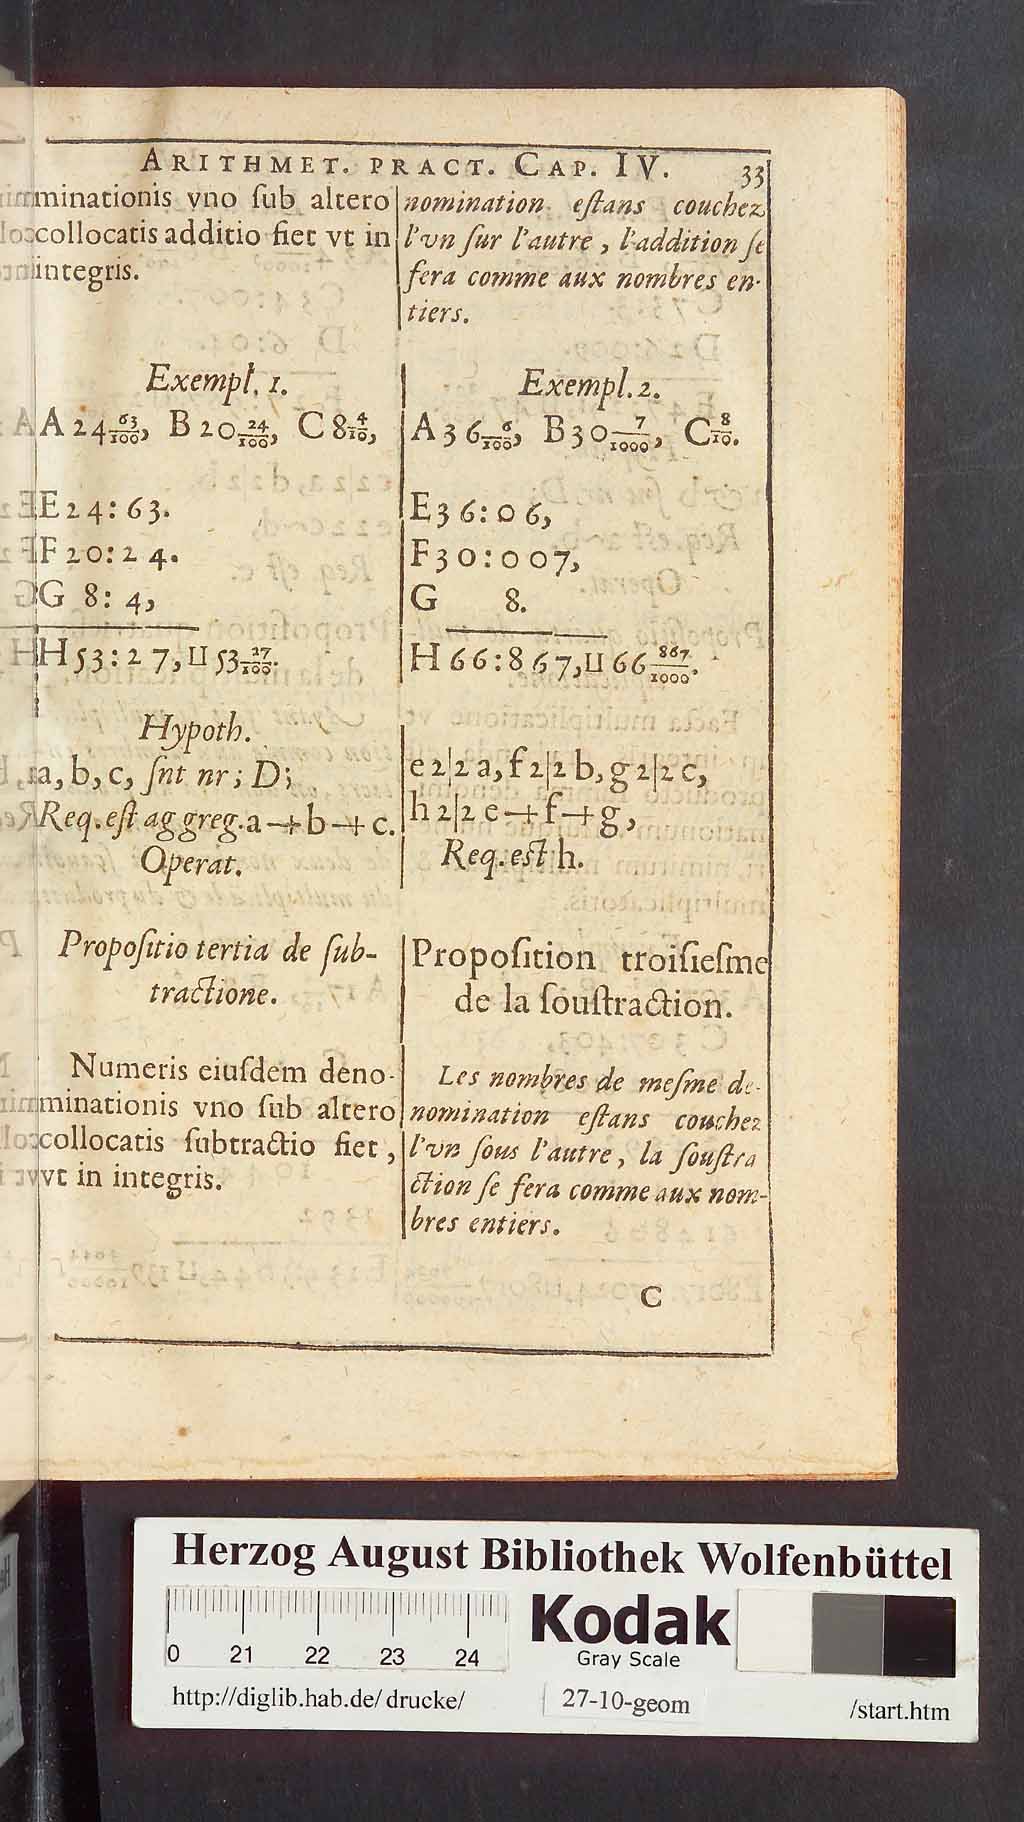 ARITHMET. PRACT. CAP. IV. 33
minationis vno ſub altero
collocatis additio fiet vt in
integris.
nomination eſtans couchez
l'vn ſur l'autre, l'addition ſe
fera comme aux nombres en-
tiers.
Exempl. 1.
A 24 63/100, B 20 24/100, C 8 4/10,
E 24: 63.
F 20: 24.
G 8: 4,
H 53: 27, ⊔ 53 27/100.
Exempl. 2.
A 36 6/100, B 30 7/1000, C 8/10.
E 36: 06,
F 30: 007,
G 8.
H 66: 867, ⊔ 66 867/1000.
Hypoth.
a, b, c, ſnt nr; D;
Req. eſt aggreg. a + b + c.
Operat.
e 2|2 a, f 2|2 b, g 2|2 c,
h 2|2 e + f + g,
Req. eſt h.
Propoſitio tertia de ſub-
tractione.
Propoſition troiſieſme
de la ſouſtraction.
Numeris eiuſdem deno-
minationis vno ſub altero
collocatis ſubtractio fiet,
vt in integris.
Les nombres de meſme de-
nomination eſtans couchez
l'vn ſous l'autre, la ſouſtra
ction ſe fera comme aux nom-
bres entiers.
C
Herzog August Bibliothek Wolfenbüttel
0 21 22 23 24
Kodak
Gray Scale
http://diglib.hab.de/drucke/ 27-10-geom /start.htm